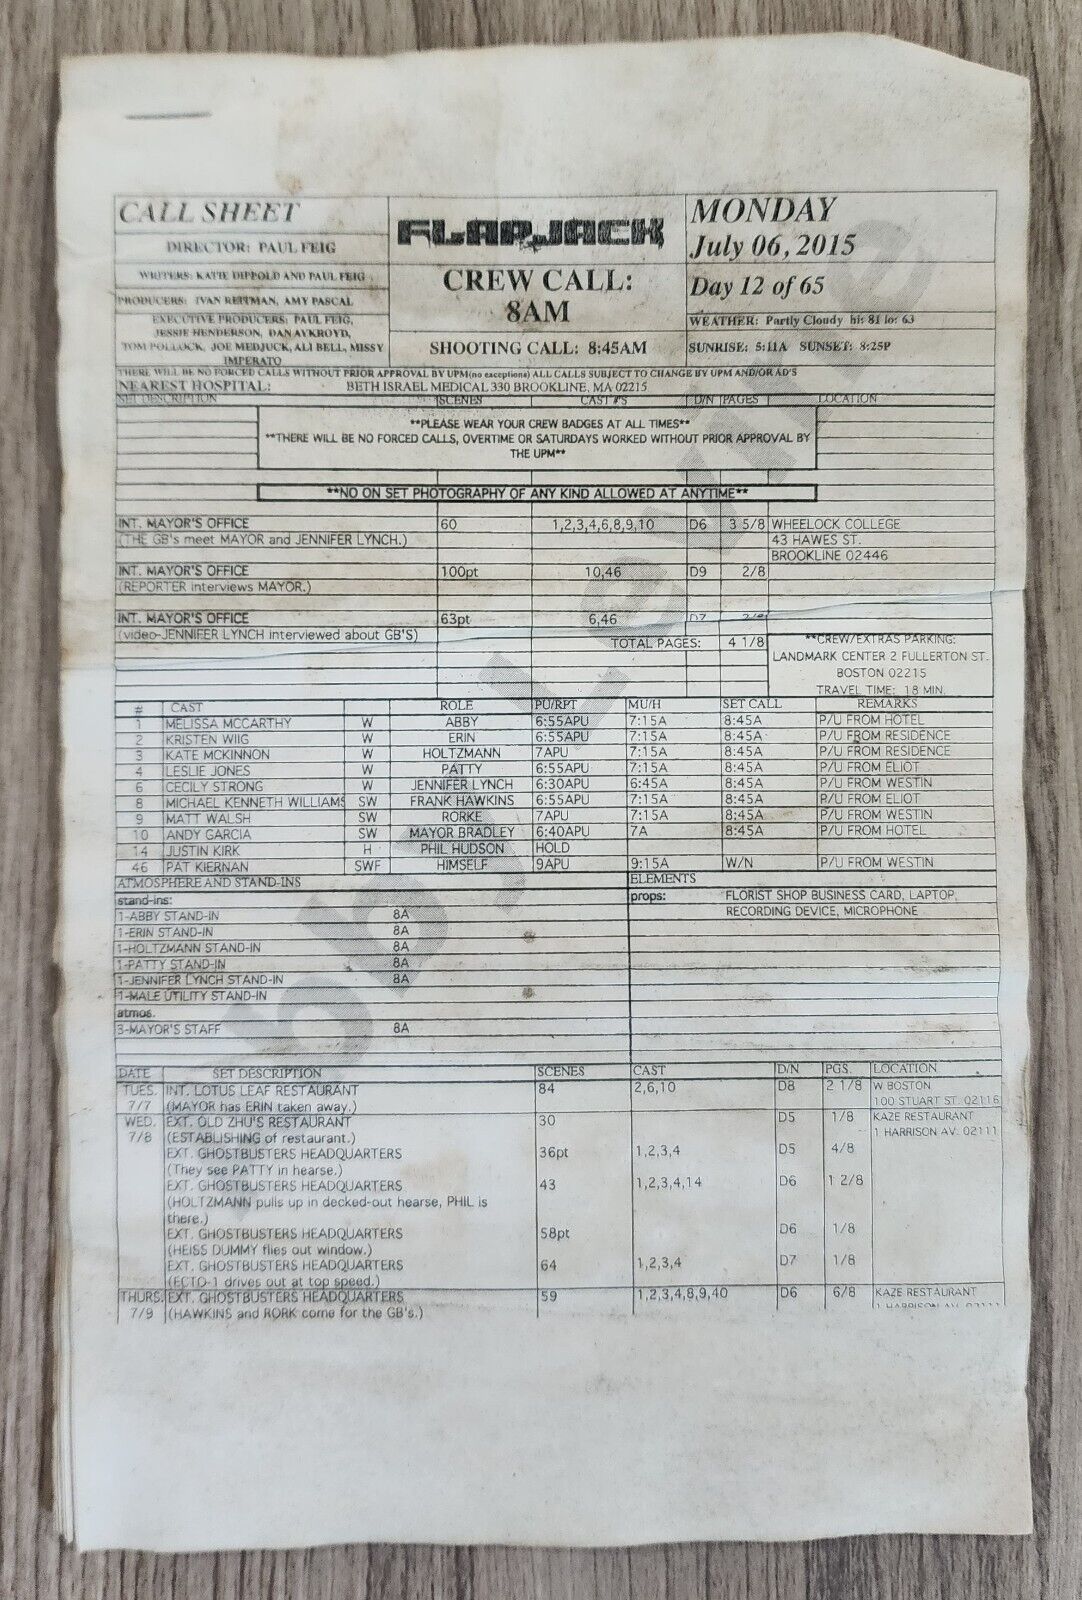 CALL SHEET
DIRECTOR: PAUL FEIG
WRITERS: KATIE DIPPOLD AND PAUL FEIG
PRODUCERS: IVAN REITMAN, AMY PASCAL
EXECUTIVE PRODUCERS: PAUL FEIG,
JESSIE HENDERSON, DAN AYKROYD,
TOM POLLOCK, JOE MEDJUCK, ALI BELL, MISSY
IMPERATO
FLAPJACK
CREW CALL:
8AM
SHOOTING CALL: 8:45AM
MONDAY
July 06, 2015
Day 12 of 65
WEATHER: Partly Cloudy hi: 81 lo: 63
SUNRISE: 5:11A SUNSET: 8:25P
THERE WILL BE NO FORCED CALLS WITHOUT PRIOR APPROVAL BY UPM(no exceptions) ALL CALLS SUBJECT TO CHANGE BY UPM AND/OR AD'S
NEAREST HOSPITAL: BETH ISRAEL MEDICAL 330 BROOKLINE, MA 02215
SET DESCRIPTION SCENES CAST #'S D/N PAGES LOCATION
**PLEASE WEAR YOUR CREW BADGES AT ALL TIMES**
**THERE WILL BE NO FORCED CALLS, OVERTIME OR SATURDAYS WORKED WITHOUT PRIOR APPROVAL BY
THE UPM**
**NO ON SET PHOTOGRAPHY OF ANY KIND ALLOWED AT ANYTIME**
INT. MAYOR'S OFFICE 60 1,2,3,4,6,8,9,10 D6 3 5/8 WHEELOCK COLLEGE
(THE GB's meet MAYOR and JENNIFER LYNCH.) 43 HAWES ST.
BROOKLINE 02446
INT. MAYOR'S OFFICE 100pt 10,46 D9 2/8
(REPORTER interviews MAYOR.)
INT. MAYOR'S OFFICE 63pt 6,46 D7 2/8
(video-JENNIFER LYNCH interviewed about GB'S)
TOTAL PAGES: 4 1/8
**CREW/EXTRAS PARKING:
LANDMARK CENTER 2 FULLERTON ST.
BOSTON 02215
TRAVEL TIME: 18 MIN.
# CAST ROLE PU/RPT MU/H SET CALL REMARKS
1 MELISSA MCCARTHY W ABBY 6:55APU 7:15A 8:45A P/U FROM HOTEL
2 KRISTEN WIIG W ERIN 6:55APU 7:15A 8:45A P/U FROM RESIDENCE
3 KATE MCKINNON W HOLTZMANN 7APU 7:15A 8:45A P/U FROM RESIDENCE
4 LESLIE JONES W PATTY 6:55APU 7:15A 8:45A P/U FROM ELIOT
6 CECILY STRONG W JENNIFER LYNCH 6:30APU 6:45A 8:45A P/U FROM WESTIN
8 MICHAEL KENNETH WILLIAMS SW FRANK HAWKINS 6:55APU 7:15A 8:45A P/U FROM ELIOT
9 MATT WALSH SW RORKE 7APU 7:15A 8:45A P/U FROM WESTIN
10 ANDY GARCIA SW MAYOR BRADLEY 6:40APU 7A 8:45A P/U FROM HOTEL
14 JUSTIN KIRK H PHIL HUDSON HOLD
46 PAT KIERNAN SWF HIMSELF 9APU 9:15A W/N P/U FROM WESTIN
ATMOSPHERE AND STAND-INS ELEMENTS
stand-ins: props: FLORIST SHOP BUSINESS CARD, LAPTOP,
1-ABBY STAND-IN 8A RECORDING DEVICE, MICROPHONE
1-ERIN STAND-IN 8A
1-HOLTZMANN STAND-IN 8A
1-PATTY STAND-IN 8A
1-JENNIFER LYNCH STAND-IN 8A
1-MALE UTILITY STAND-IN
atmos.
3-MAYOR'S STAFF 8A
DATE SET DESCRIPTION SCENES CAST D/N PGS. LOCATION
TUES. INT. LOTUS LEAF RESTAURANT 84 2,6,10 D8 2 1/8 W BOSTON
7/7 (MAYOR has ERIN taken away.) 100 STUART ST. 02116
WED. EXT. OLD ZHU'S RESTAURANT 30 D5 1/8 KAZE RESTAURANT
7/8 (ESTABLISHING of restaurant.) 1 HARRISON AV. 02111
EXT. GHOSTBUSTERS HEADQUARTERS 36pt 1,2,3,4 D5 4/8
(They see PATTY in hearse.)
EXT. GHOSTBUSTERS HEADQUARTERS 43 1,2,3,4,14 D6 1 2/8
(HOLTZMANN pulls up in decked-out hearse, PHIL is
there.)
EXT. GHOSTBUSTERS HEADQUARTERS 58pt D6 1/8
(HEISS DUMMY flies out window.)
EXT. GHOSTBUSTERS HEADQUARTERS 64 1,2,3,4 D7 1/8
(ECTO-1 drives out at top speed.)
THURS. EXT. GHOSTBUSTERS HEADQUARTERS 59 1,2,3,4,8,9,40 D6 6/8 KAZE RESTAURANT
7/9 (HAWKINS and RORK come for the GB's.) 1 HARRISON AV. 02111